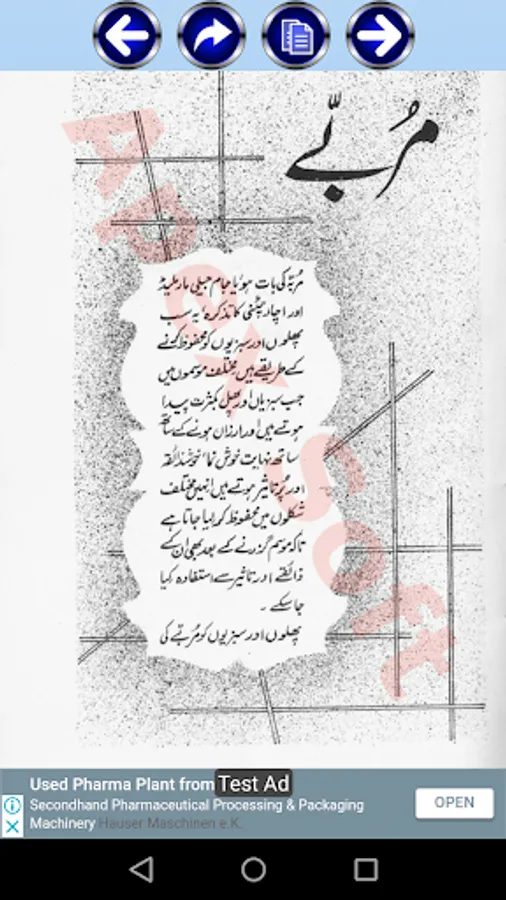 مُربّے
مُربّہ کی بات ہو یا جام جیلی مارملیڈ
اور اچار چٹنی کا تذکرہ یہ سب
پھلوں اور سبزیوں کو محفوظ کرنے
کے طریقے ہیں مختلف موسموں میں
جب سبزیاں اور پھل بکثرت پیدا
ہوتے ہیں اور ارزاں ہونے کے ساتھ
ساتھ نہایت خوش نما خوش ذائقہ
اور پُر تاثیر ہوتے ہیں انہیں مختلف
شکلوں میں محفوظ کر لیا جاتا ہے
تاکہ موسم گزرنے کے بعد بھی ان کے
ذائقے اور تاثیر سے استفادہ کیا
جا سکے ۔
پھلوں اور سبزیوں کو مُربّے کی
Apex Soft
Used Pharma Plant from
Test Ad
Secondhand Pharmaceutical Processing & Packaging
Machinery Hauser Maschinen e.K.
OPEN